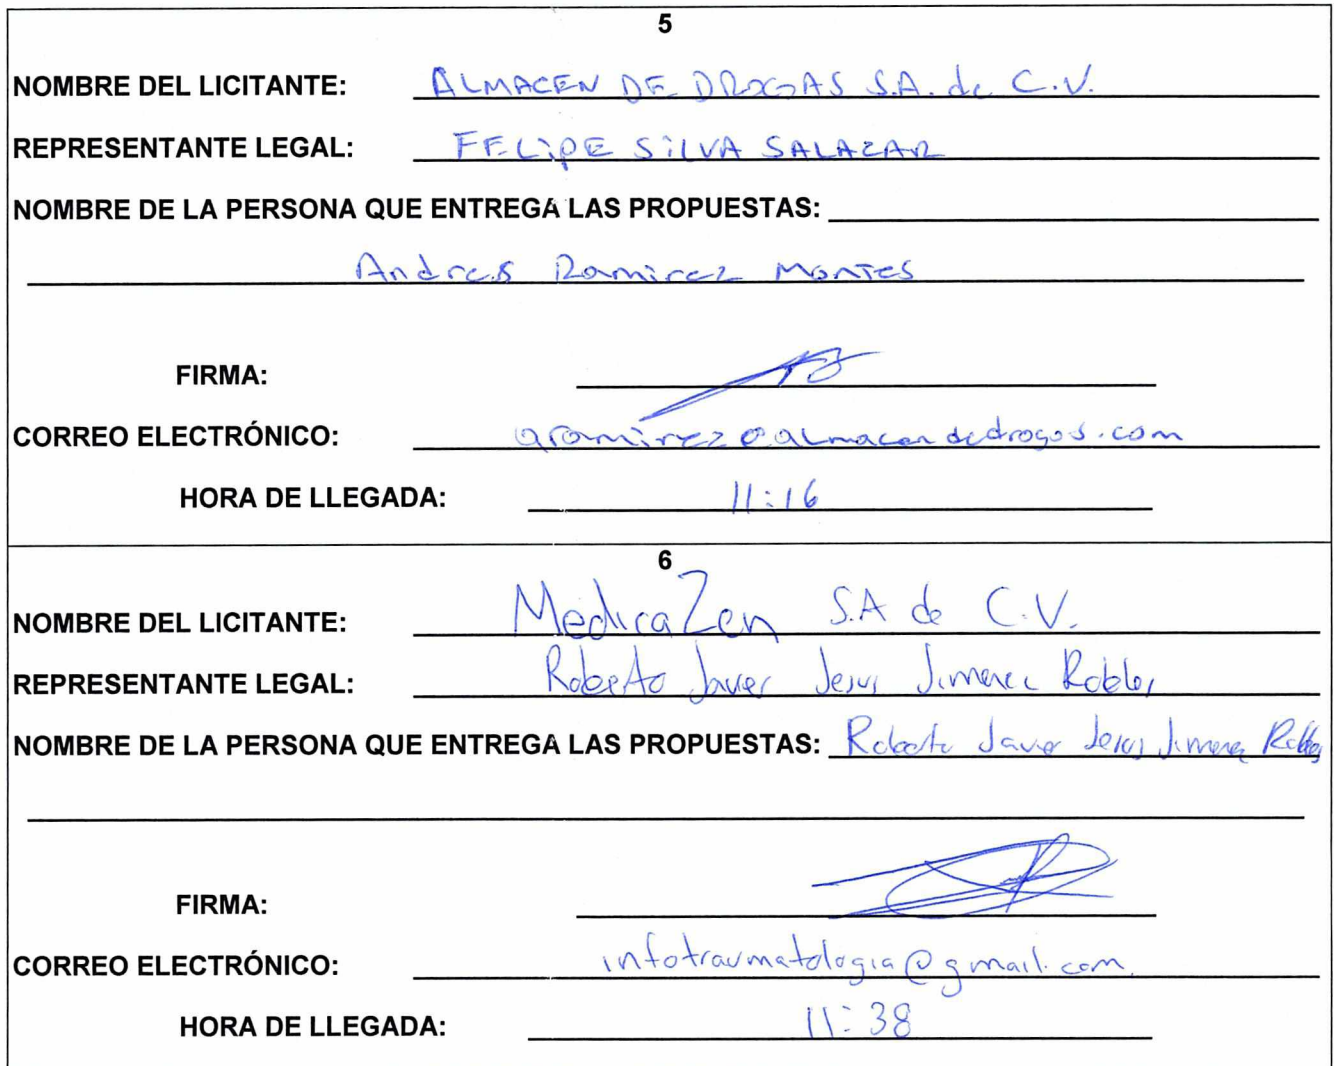 5
NOMBRE DEL LICITANTE: ALMACEN DE DROGAS S.A. de C.V.
REPRESENTANTE LEGAL: FELIPE SILVA SALAZAR
NOMBRE DE LA PERSONA QUE ENTREGA LAS PROPUESTAS:
Andres Ramirez Montes
FIRMA:
CORREO ELECTRÓNICO: aramirez@almacendedrogas.com
HORA DE LLEGADA: 11:16
6
NOMBRE DEL LICITANTE: MedicaZen S.A de C.V.
REPRESENTANTE LEGAL: Roberto Javier Jesus Jimenez Robles
NOMBRE DE LA PERSONA QUE ENTREGA LAS PROPUESTAS: Roberto Javier Jesus Jimenez Robles
FIRMA:
CORREO ELECTRÓNICO: infotraumatologia@gmail.com
HORA DE LLEGADA: 11:38